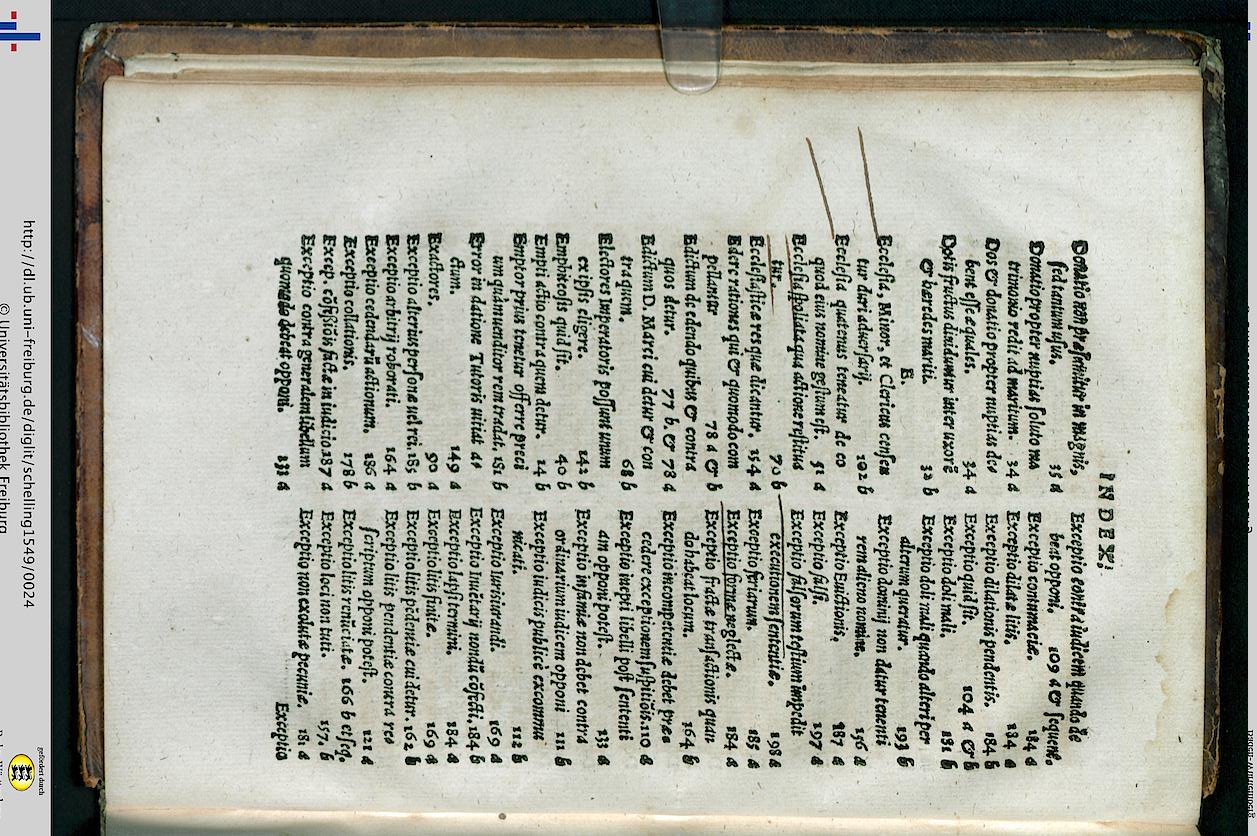 INDEX.
Donatio non præsumitur in magnis,
sed tantum usus. 35 a
Donatio propter nuptias soluto ma
trimonio redit ad maritum. 34 a
Dos & donatio propter nuptias de<
bent esse æquales. 34 a
Dotis fructus diuidantur inter uxorē
& hæredes mariti. 32 b
E.
Ecclesia, Minor, et Clericus censen
tur diuri aduersarij. 102 b
Ecclesia quatenus teneatur de eo
quod eius nomine gestum est. 51 a
Ecclesia spoliata qua actione restitua
tur. 70 b
Ecclesiasticæ res quæ dicantur. 154 a
Edere rationes qui & quomodo com
pellantur 78 a & b
Edictum de edendo quibus & contra
quos detur. 77 b. & 78 a
Edictum D. Marci cui detur & con
tra quem. 68 b
Electores Imperatoris possunt unum
ex ipsis eligere. 142 b
Emphiteosis quid sit. 40 b
Empti actio contra quem detur. 24 b
Emptor prius tenetur offerre preci
um quàm uenditor rem tradat. 181 b
Error in datione Tutoris uitiat a<
ctum. 149 a
Exactores. 90 a
Exceptio alterius personæ uel rei. 185 b
Exceptio arbitrij roborati. 164 a
Exceptio cedendarū actionum. 186 a
Exceptio collationis. 178 b
Excep. cōfessiōis factæ in iudicio. 187 a
Exceptio contra generalem libellum
quomodo debeat opponi. 132 a
Exceptio contra Iudicem quando de
beat opponi. 109 a & sequent.
Exceptio contumaciæ. 184 a
Exceptio dilatæ litis. 184 a
Exceptio dilationis pendentis. 184 b
Exceptio quid sit. 104 a & b
Exceptio doli mali. 181 b
Exceptio doli mali quando alteri per
alterum queratur. 193 b
Exceptio dominij non datur tenenti
rem alieno nomine. 156 a
Exceptio Euictionis. 187 a
Exceptio falsi. 197 a
Exceptio falsorum testium impedit
executionem sententiæ. 198 a
Exceptio feriarum. 185 a
Exceptio formæ neglectæ. 184 a
Exceptio factæ transactionis quan
do habeat locum. 164 b
Exceptio incompetentiæ debet præ<
cedere exceptionem suspitiōis. 110 a
Exceptio inepti libelli post sententi
am opponi potest. 132 a
Exceptio infamiæ non debet contra
ordinarium iudicem opponi 111 b
Exceptio iudicis publicè excommu
nicati. 112 b
Exceptio Iurisiurandi. 169 a
Exceptio Inuētarij nondū cōfecti. 184 b
Exceptio lapsi termini. 184 a
Exceptio litis finitæ. 169 a
Exceptio litis pēdentiæ cui detur. 162 b
Exceptio litis pendentiæ contra res
scriptum opponi potest. 121 a
Exceptio litis renūctatæ. 166 b et seq.
Exceptio loci non tuti. 157. b
Exceptio non solutæ pecuniæ. 181 a
Exceptio
http://dl.ub.uni-freiburg.de/diglit/schelling1549/0024
© Universitätsbibliothek Freiburg
gefördert durch